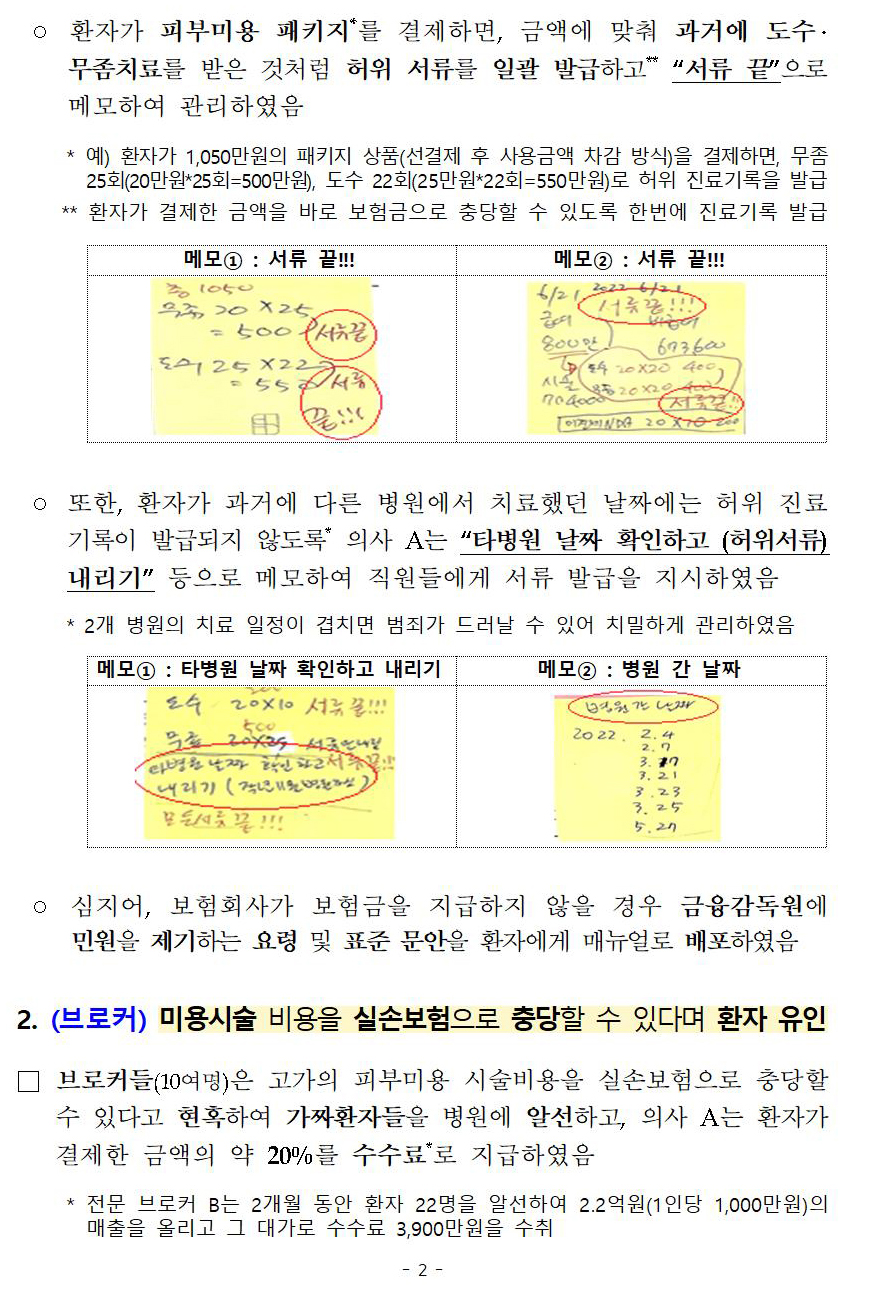 ○ 환자가 피부미용 패키지*를 결제하면, 금액에 맞춰 과거에 도수·
무좀치료를 받은 것처럼 허위 서류를 일괄 발급하고** “서류 끝”으로
메모하여 관리하였음
* 예) 환자가 1,050만원의 패키지 상품(선결제 후 사용금액 차감 방식)을 결제하면, 무좀
25회(20만원*25회=500만원), 도수 22회(25만원*22회=550만원)로 허위 진료기록을 발급
** 환자가 결제한 금액을 바로 보험금으로 충당할 수 있도록 한번에 진료기록 발급
메모① : 서류 끝!!! 메모② : 서류 끝!!!
총 1050
무좀 20 X 25
= 500 서류끝
도수 25 X 22
= 550 서류
끝!!!
6/21. 2022 6/21
서류끝!!!
급여 비급여
800만 673600
도수 20X20 400
시술 무좀 20X20 400
704000 서류끝!!
20 X 10 200
○ 또한, 환자가 과거에 다른 병원에서 치료했던 날짜에는 허위 진료
기록이 발급되지 않도록* 의사 A는 “타병원 날짜 확인하고 (허위서류)
내리기” 등으로 메모하여 직원들에게 서류 발급을 지시하였음
* 2개 병원의 치료 일정이 겹치면 범죄가 드러날 수 있어 치밀하게 관리하였음
메모① : 타병원 날짜 확인하고 내리기 메모② : 병원 간 날짜
200
도수 20X10 서류끝!!!
500
무좀 20X25
타병원 날짜 확인하고 서류끝!!
내리기
모든서류끝!!!
병원간 날짜
2022. 2.4
2.7
3.17
3.21
3.23
3.25
5.27
○ 심지어, 보험회사가 보험금을 지급하지 않을 경우 금융감독원에
민원을 제기하는 요령 및 표준 문안을 환자에게 매뉴얼로 배포하였음
2. (브로커) 미용시술 비용을 실손보험으로 충당할 수 있다며 환자 유인
□ 브로커들(10여명)은 고가의 피부미용 시술비용을 실손보험으로 충당할
수 있다고 현혹하여 가짜환자들을 병원에 알선하고, 의사 A는 환자가
결제한 금액의 약 20%를 수수료*로 지급하였음
* 전문 브로커 B는 2개월 동안 환자 22명을 알선하여 2.2억원(1인당 1,000만원)의
매출을 올리고 그 대가로 수수료 3,900만원을 수취
- 2 -